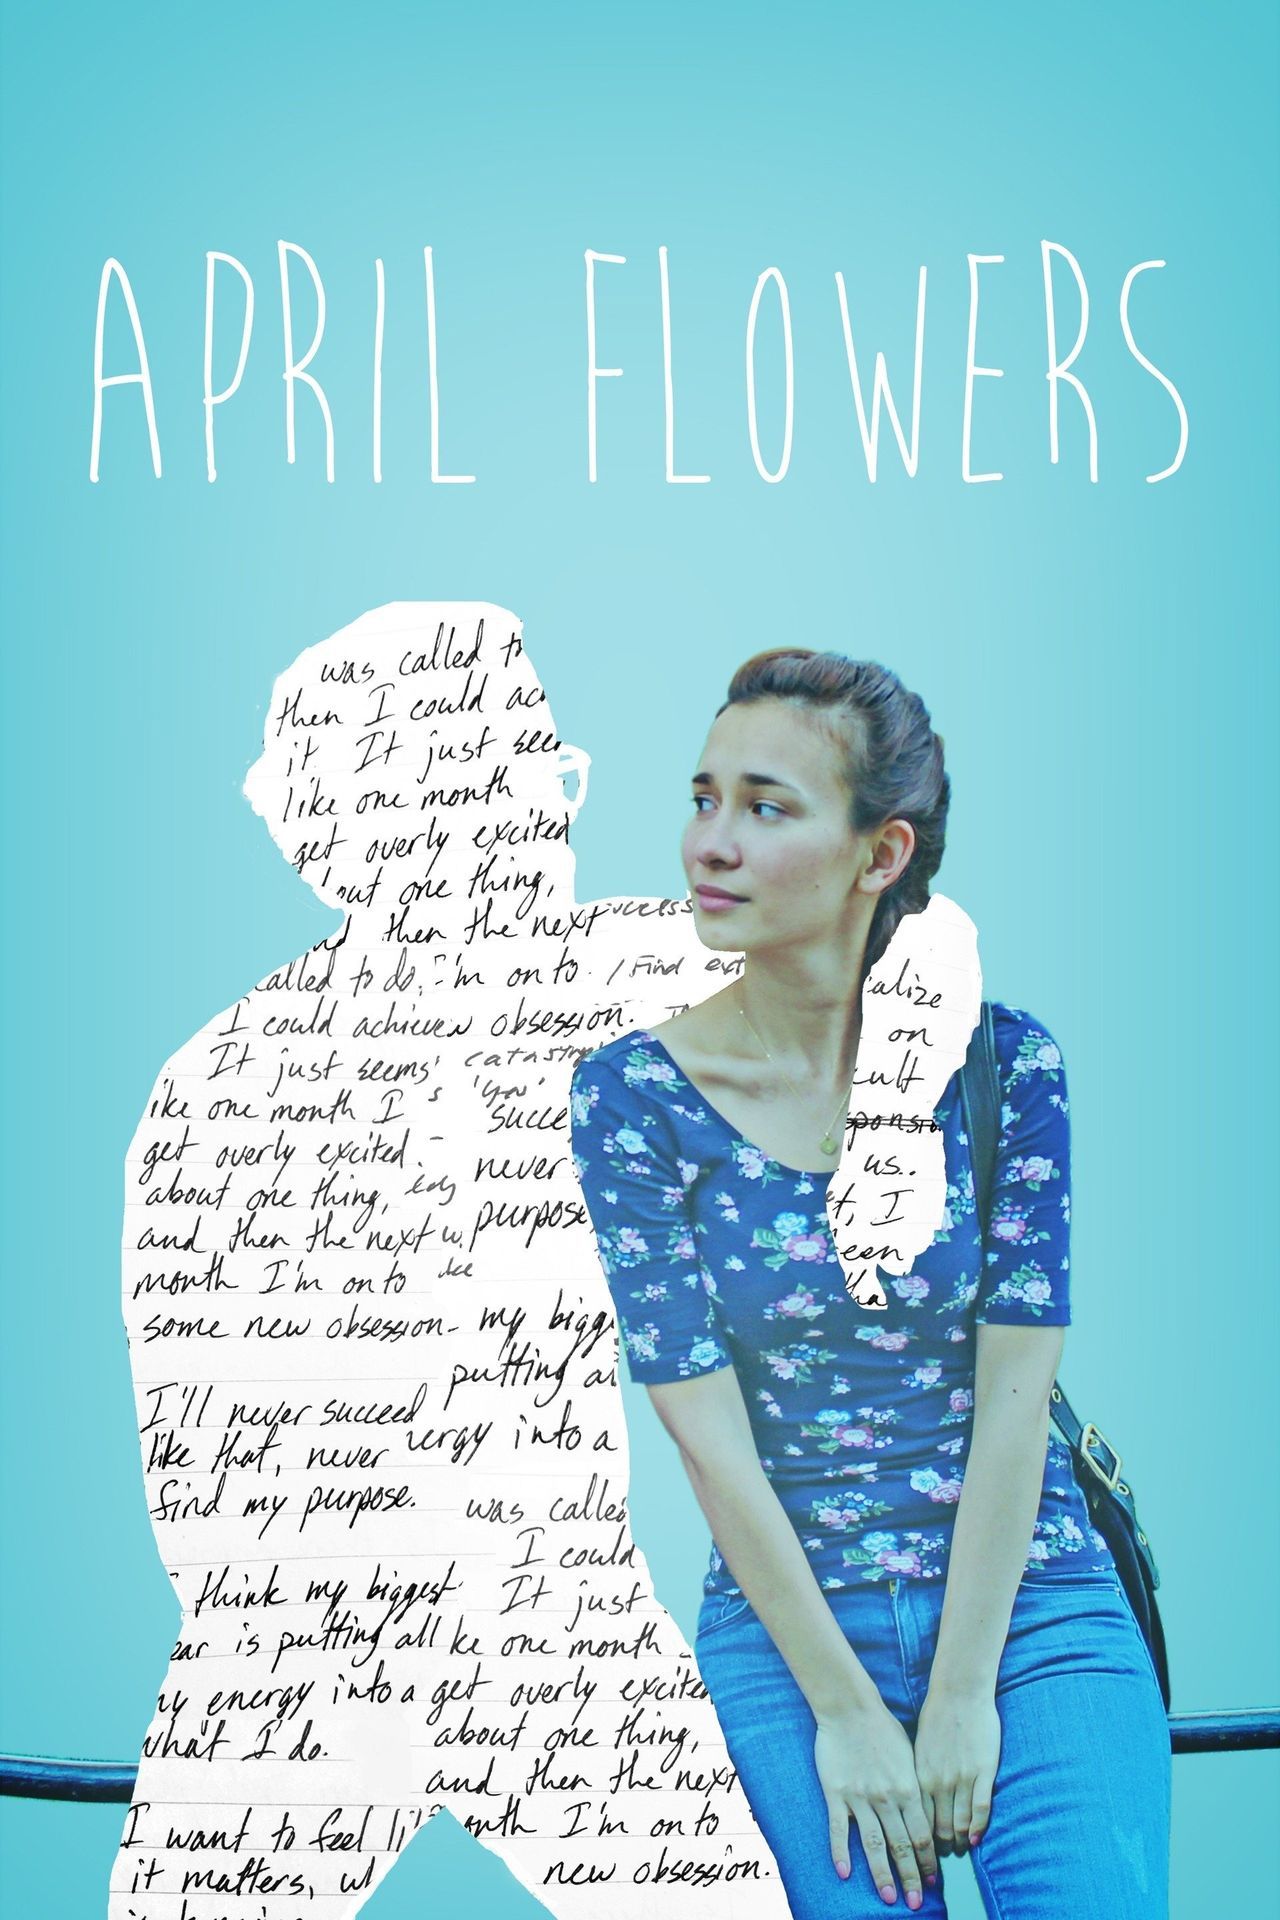 APRIL FLOWERS
was called
then I could
it. It just
like one month
get overly excited
one thing,
then the next
called to do. I'm on to / Find
I could achieve obsession.
It just seems
one month I succe
get overly excited never
about one thing, purpose
and then the next
month I'm on to
some new obsession- my bigg
putting
I'll never succeed
like that, never into a
find my purpose.
was called
I could
think my biggest It just
is putting all one month
energy into a get overly excited
what I do. about one thing,
and then the next
I want to feel I'm on to
it matters, new obsession.
alize
on
cult
us..
I
een
tha